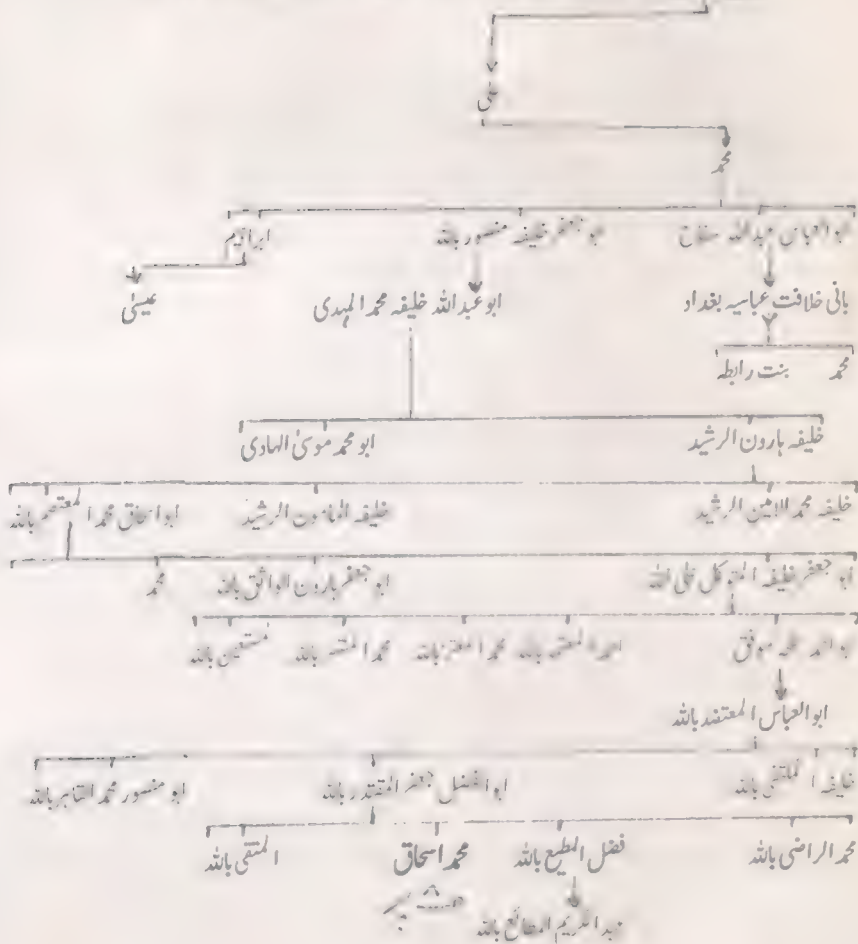 علی
محمد
ابوالعباس عبداللہ سفاح ابو جعفر خلیفہ منصور باللہ ابراہیم
بانی خلافت عباسیہ بغداد ابو عبداللہ خلیفہ محمد المہدی عیسیٰ
محمد بنت رابطہ
خلیفہ ہارون الرشید ابو محمد موسیٰ الہادی
خلیفہ محمد الامین الرشید خلیفہ المامون الرشید ابو اسحاق محمد المعتصم باللہ
ابو جعفر خلیفہ المتوکل علی اللہ ابو جعفر ہارون الواثق باللہ محمد
ابو احمد طلحہ موفق احمد المعتمد باللہ محمد المعتز باللہ محمد المنتصر باللہ مستعین باللہ
ابوالعباس المعتضد باللہ
خلیفہ المکتفی باللہ ابوالفضل جعفر المقتدر باللہ ابو منصور محمد القاہر باللہ
محمد الراضی باللہ فضل المطیع باللہ محمد اسحاق المتقی باللہ
عبدالکریم الطائع باللہ